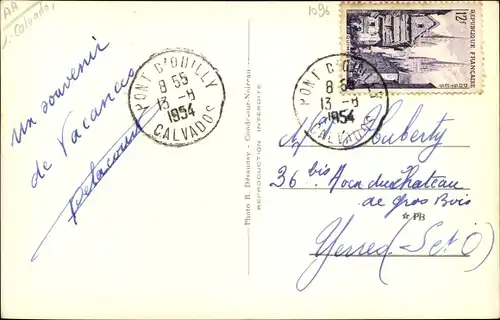 AA
Calvados
1096
12F
REPUBLIQUE FRANÇAISE
PONT D'OUILLY
8 55
13 - 8
1954
CALVADOS
PONT D'OUILLY
8 55
13 - 8
1954
CALVADOS
un souvenir
de Vacances
Photo R. Dessaussy - Condé-sur-Noireau
REPRODUCTION INTERDITE
Huberty
36 bis Aven du Chateau
de gros Bois
☆ PB
Yerres (S et O)